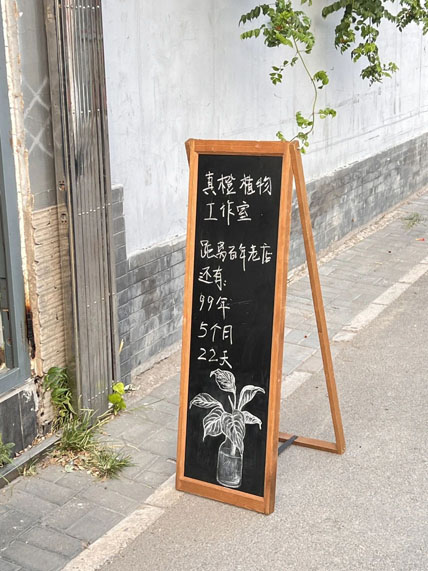 真橙植物
工作室
距离百年老店
还有:
99年
5个月
22天